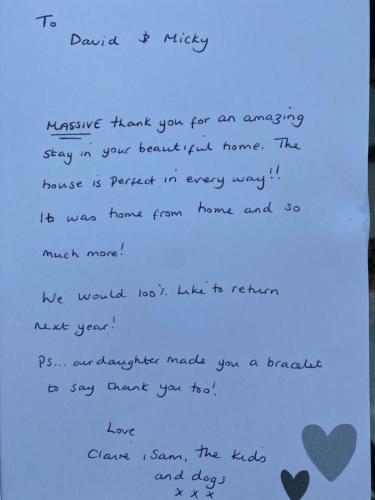 To
David & Micky
MASSIVE thank you for an amazing
stay in your beautiful home. The
house is perfect in every way!!
It was home from home and so
much more!
We would 100% like to return
next year!
PS... our daughter made you a bracelet
to say thank you too!
Love
Claire, Sam, the kids
and dogs
x x x